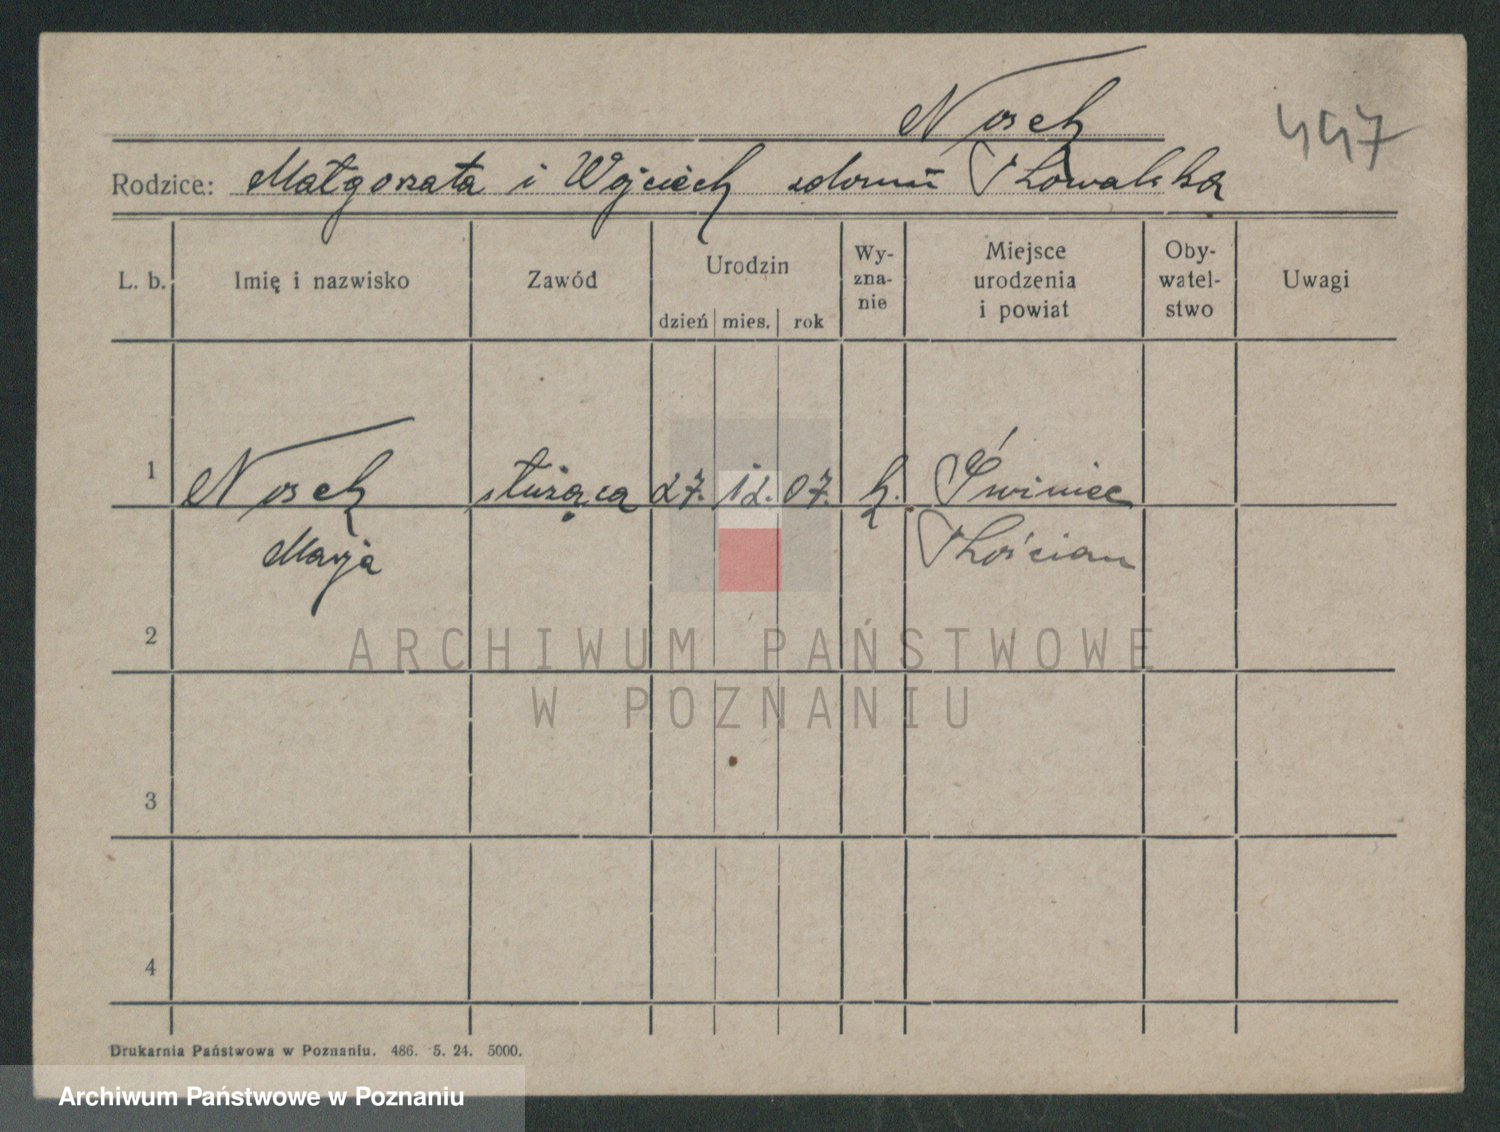 Nosek
447
Rodzice: Małgorzata i Wojciech zdomu Kowalska
L. b.
Imię i nazwisko
Zawód
Urodzin
dzień mies. rok
Wy-
zna-
nie
Miejsce
urodzenia
i powiat
Oby-
watel-
stwo
Uwagi
1 Nosek służąca 27. 12. 07. k. Świniec
Marja Kościan
2
3
4
ARCHIWUM PAŃSTWOWE
W POZNANIU
Drukarnia Państwowa w Poznaniu. 486. 5. 24. 5000.
Archiwum Państwowe w Poznaniu